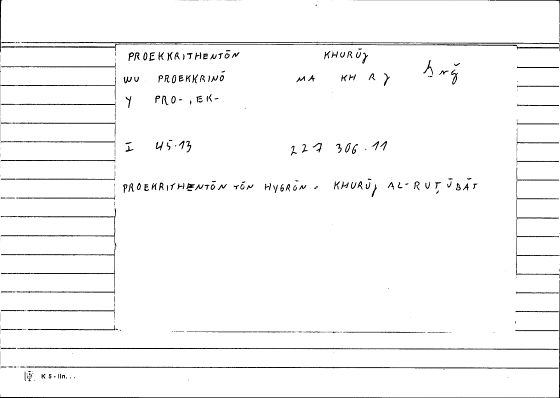 PROEKKRITHENTŌN KHURŪJ
WU PROEKKRINŌ MA KH R J ḫrǧ
Y PRO-, EK-
I 45.13 227 306.11
PROEKRITHENTŌN TŌN HYGRŌN - KHURŪJ AL-RUṬŪBĀT
K 5 - lin...